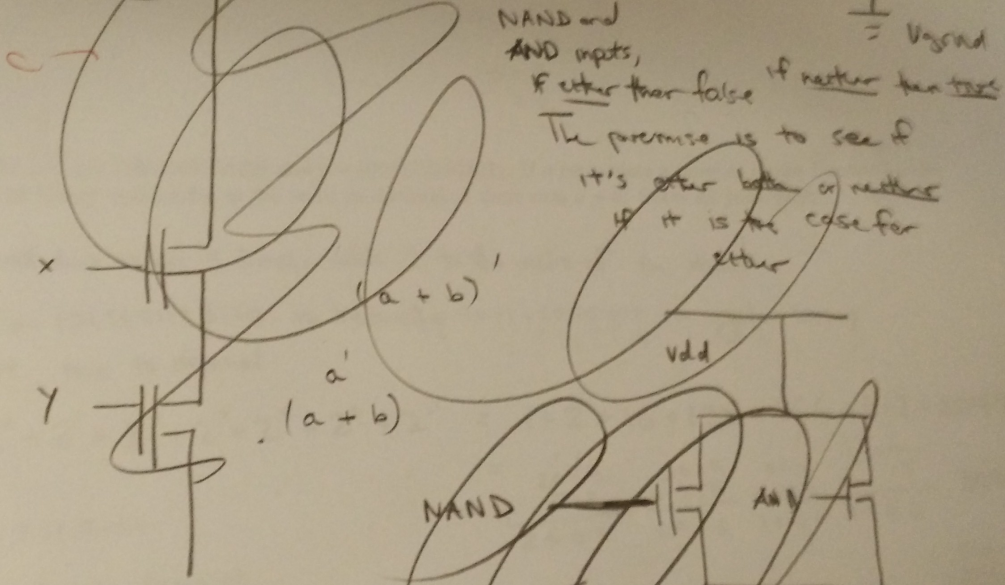 NAND and
AND inputs,
if either then false if neither then true
Vgrnd
The premise is to see if
it's either both or neither
if it is the case for
either
x
(a + b)'
Vdd
a'
Y
(a + b)
NAND
AND